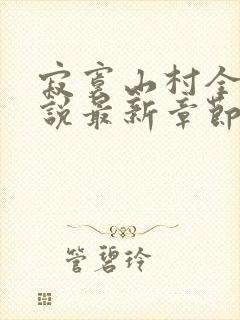 寂寞山村全
說最新章節
管碧玲